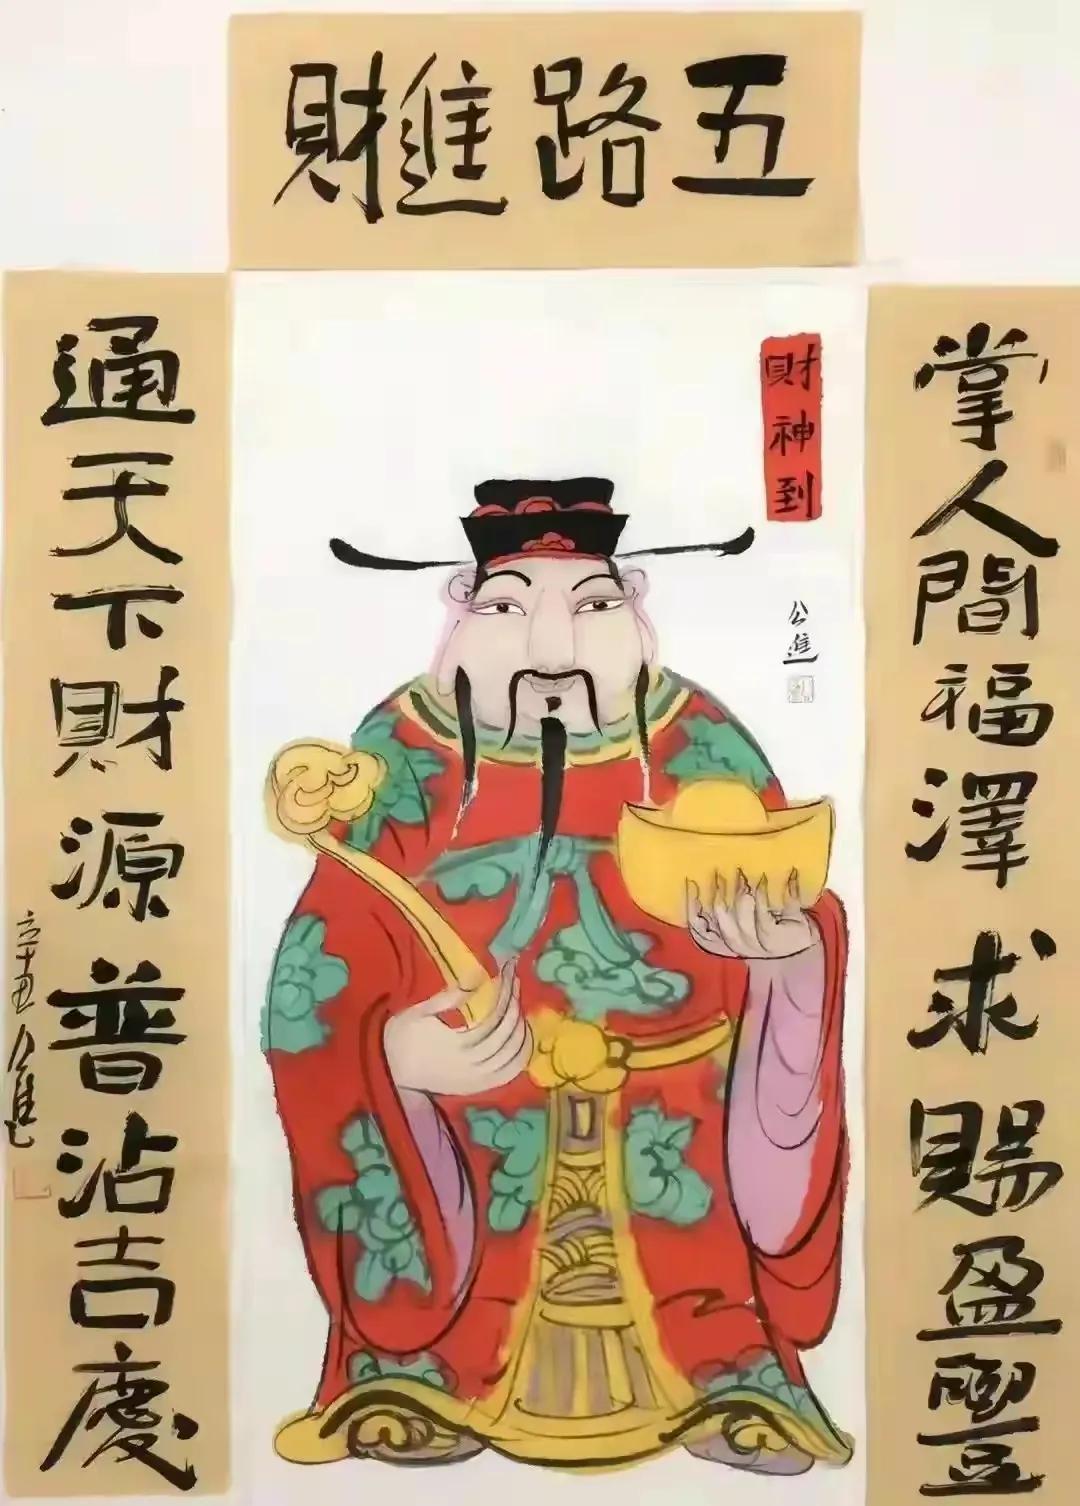 五路進財
掌人間福澤求賜盈豐
財神到
公進
通天下財源普沾吉慶
辛丑公進